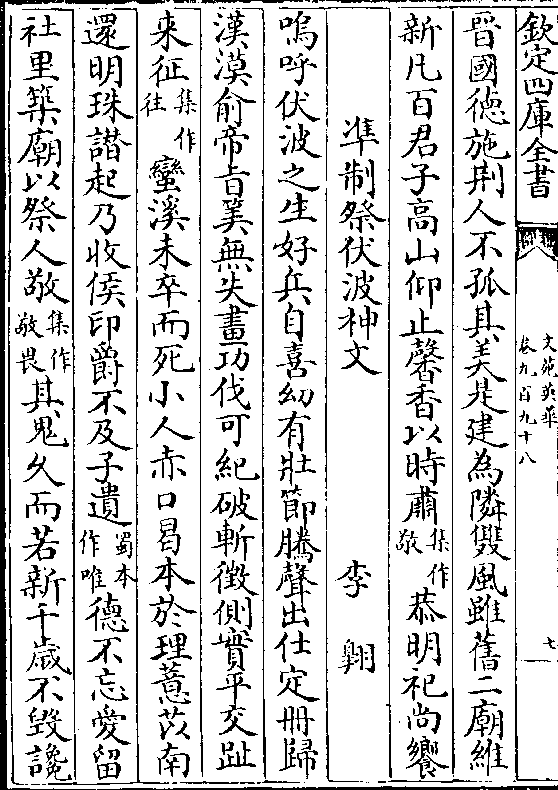 欽定四庫全書
文苑英華
卷九百九十八
七
晉國德施荆人不孤其美是建為隣雙風雖舊二廟維
新凡百君子高山仰止馨香以時肅集作敬恭明祀尚饗
準制祭伏波神文 李翺
嗚呼伏波之生好兵自喜幼有壯節騰聲出仕定冊歸
漢漠俞帝旨巽無失畫功伐可紀破斬徵側實平交趾
来征集作往蠻溪未卒而死小人赤口曷本於理薏苡南
還明珠譛起乃收侯印爵不及子遺蜀本作唯德不忘愛留
社里築廟以祭人敬集作敬畏其鬼久而若新千歲不毁讒